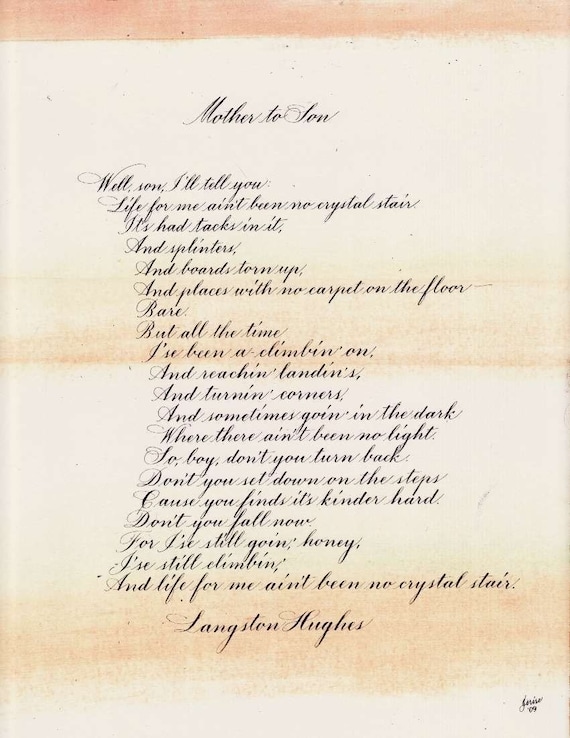 Mother to Son
Well, son, I'll tell you:
Life for me ain't been no crystal stair.
It's had tacks in it,
And splinters,
And boards torn up,
And places with no carpet on the floor—
Bare.
But all the time
I'se been a-climbin' on,
And reachin' landin's,
And turnin' corners,
And sometimes goin' in the dark
Where there ain't been no light.
So, boy, don't you turn back.
Don't you set down on the steps
Cause you finds it's kinder hard.
Don't you fall now
For I'se still goin', honey,
I'se still climbin',
And life for me ain't been no crystal stair.
Langston Hughes
'09